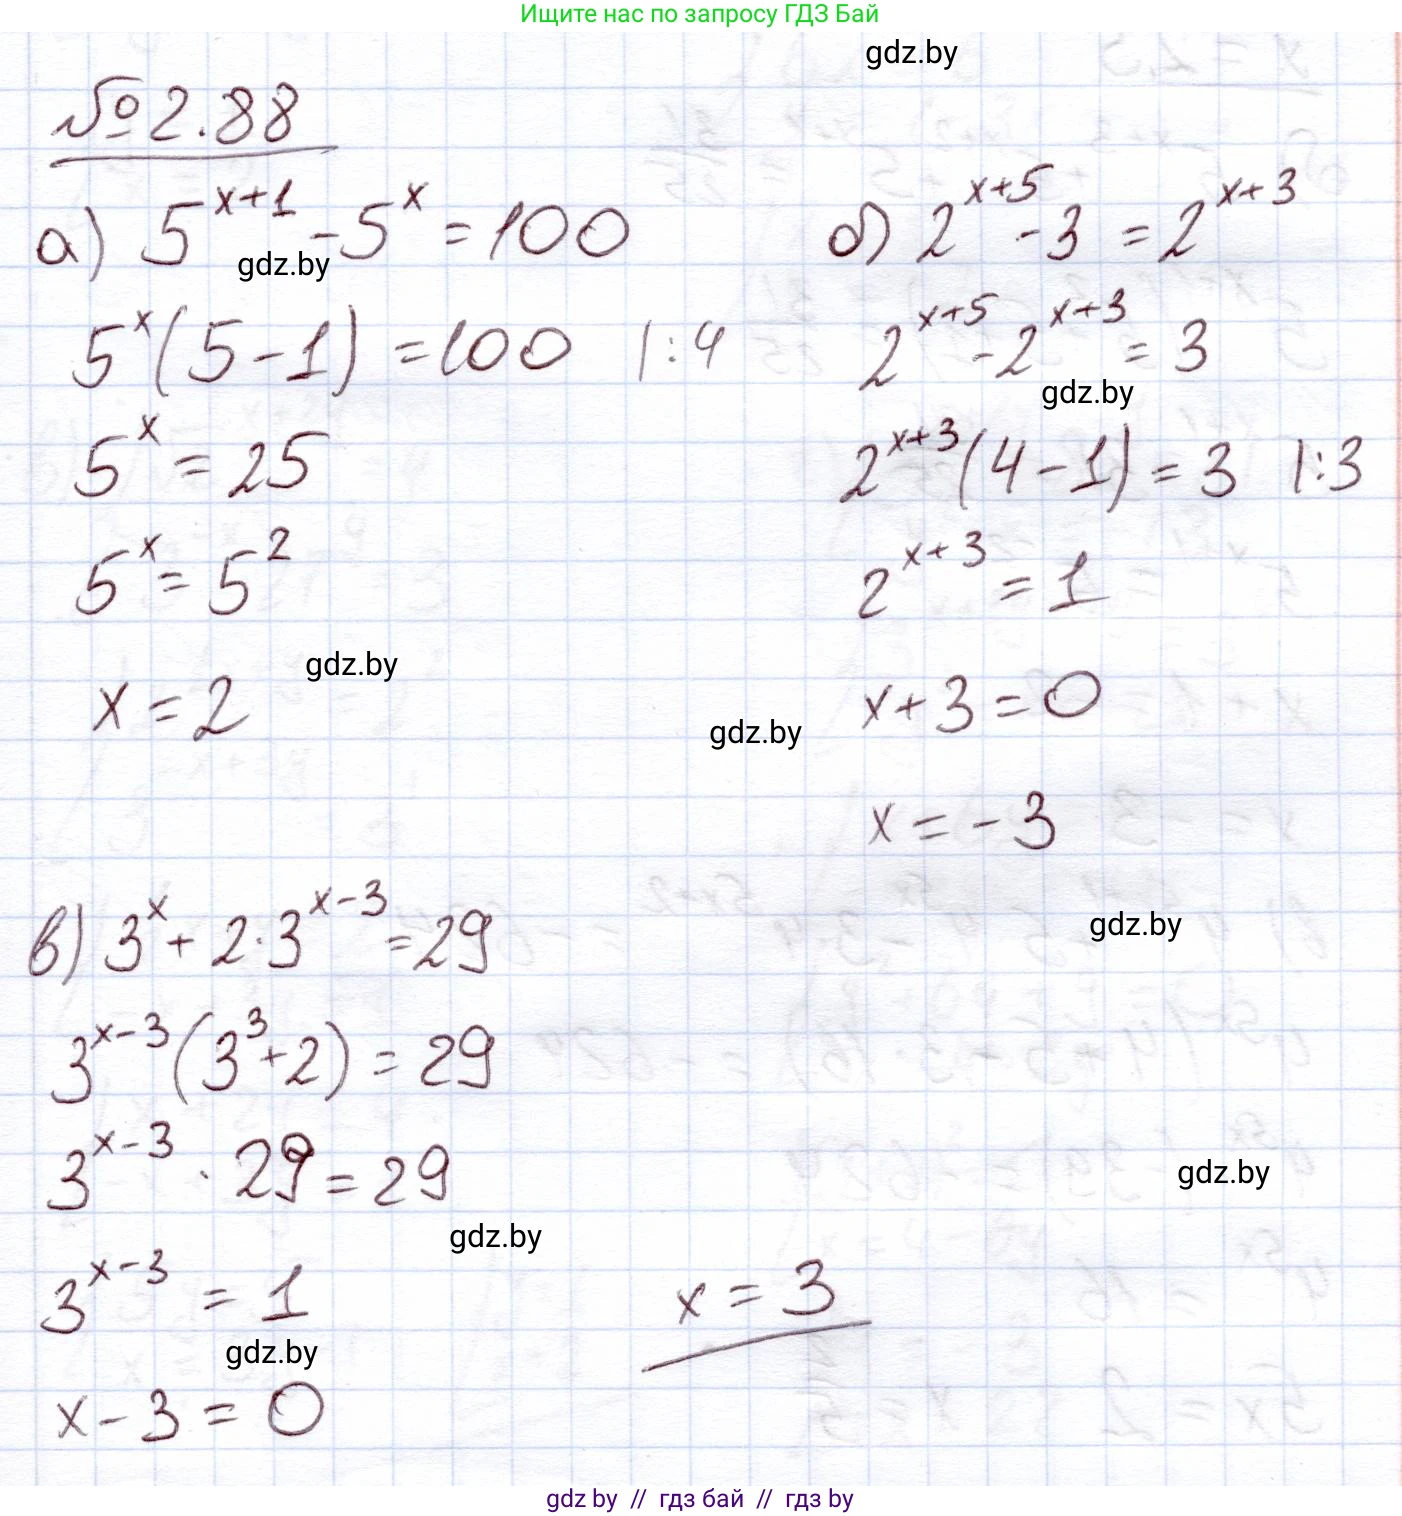 Ищите нас по запросу ГДЗ Бай
gdz.by
№ 2.88
а) 5^(x+1) - 5^x = 100
gdz.by
5^x (5 - 1) = 100 |:4
5^x = 25
5^x = 5^2
x = 2
gdz.by
б) 2^(x+5) - 3 = 2^(x+3)
2^(x+5) - 2^(x+3) = 3
gdz.by
2^(x+3) (4 - 1) = 3 |:3
2^(x+3) = 1
x + 3 = 0
gdz.by
x = -3
gdz.by
в) 3^x + 2·3^(x-3) = 29
3^(x-3) (3^3 + 2) = 29
3^(x-3) · 29 = 29
gdz.by
gdz.by
3^(x-3) = 1
gdz.by
x - 3 = 0
x = 3
gdz by // гдз бай // гдз by